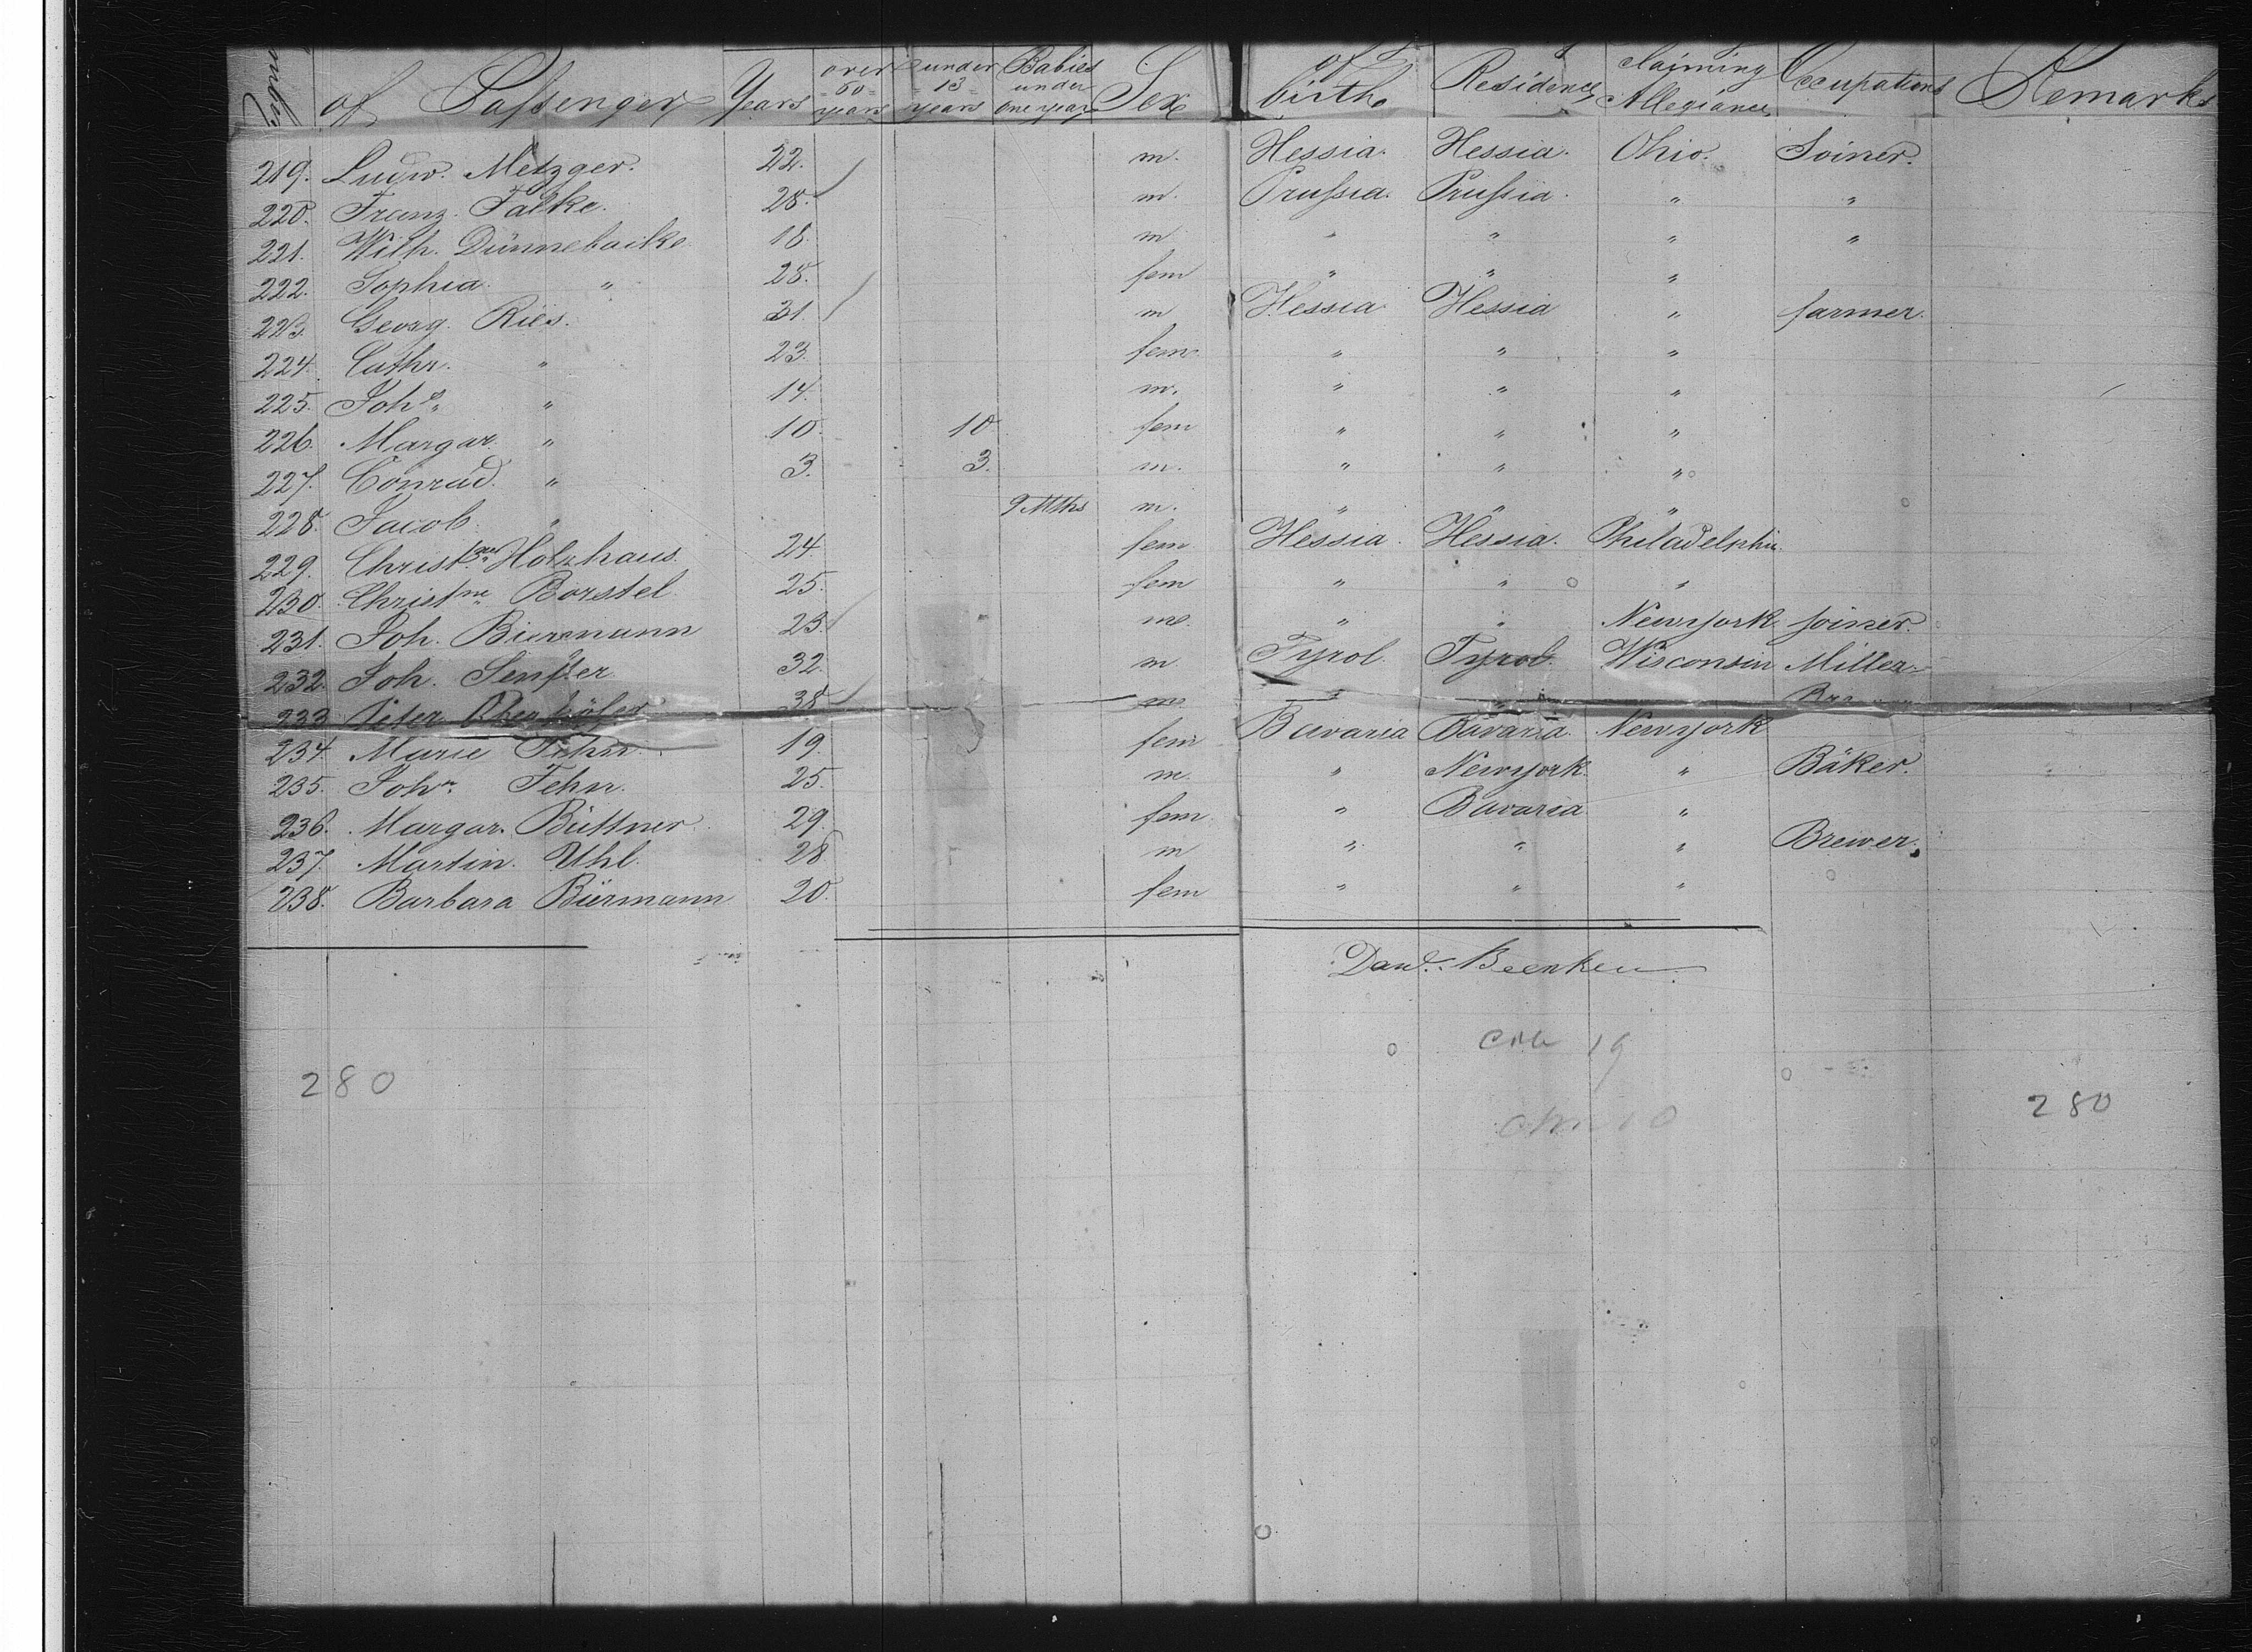 of Passenger Years over 60 years under 13 years Babies under one year Sex of birth Residence claiming Allegiance Occupations Remarks
219. Ludw. Metzger. 22. m. Hessia. Hessia. Ohio. Joiner.
220. Franz. Falke. 28. m. Prussia. Prussia. " "
221. Wilh. Dünnebacke 18. m " " " "
222. Sophia " 28. fem " " "
223. Georg. Ries. 31. m Hessia Hessia " farmer.
224. Cathr. " 23. fem " " "
225. Johs " 14. m. " " "
226. Margar. " 10. 10 fem " " "
227. Conrad. " 3. 3. m. " " "
228. Jacob " 9 Mths m. " " "
229. Christne Holzhaus. 24 fem Hessia. Hessia. Philadelphia.
230. Christne Borstel. 25. fem " " "
231. Joh. Biermann 23. m. " " Newyork joiner.
232. Joh. Senfter 32. m. Tyrol. Tyrol. Wisconsin Miller.
233 Peter 38 m. " "
234. Marie Fehn. 19. fem Bavaria Bavaria Newyork
235. John. Fehn. 25. m. " Newyork. " Bäker.
236. Margar. Büttner 29. fem " Bavaria "
237. Martin. Uhl. 28 m " " " Brewer.
238. Barbara Biermann 20. fem " " "
Dan. Beenken
19
280
280